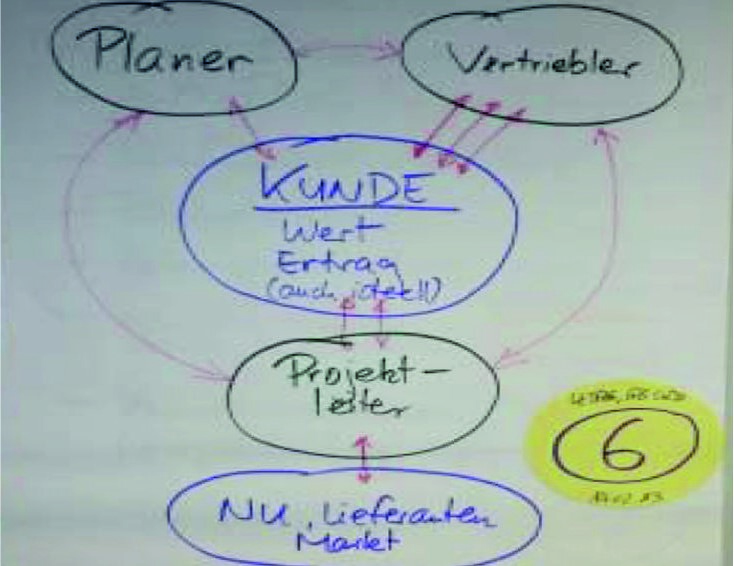 Planer
Vertriebler
KUNDE
Wert
Ertrag
(auch ideell)
Projekt-
leiter
NU, Lieferanten
Markt
6